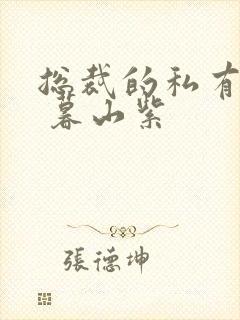 总裁的私有
暮山紫
張德坤